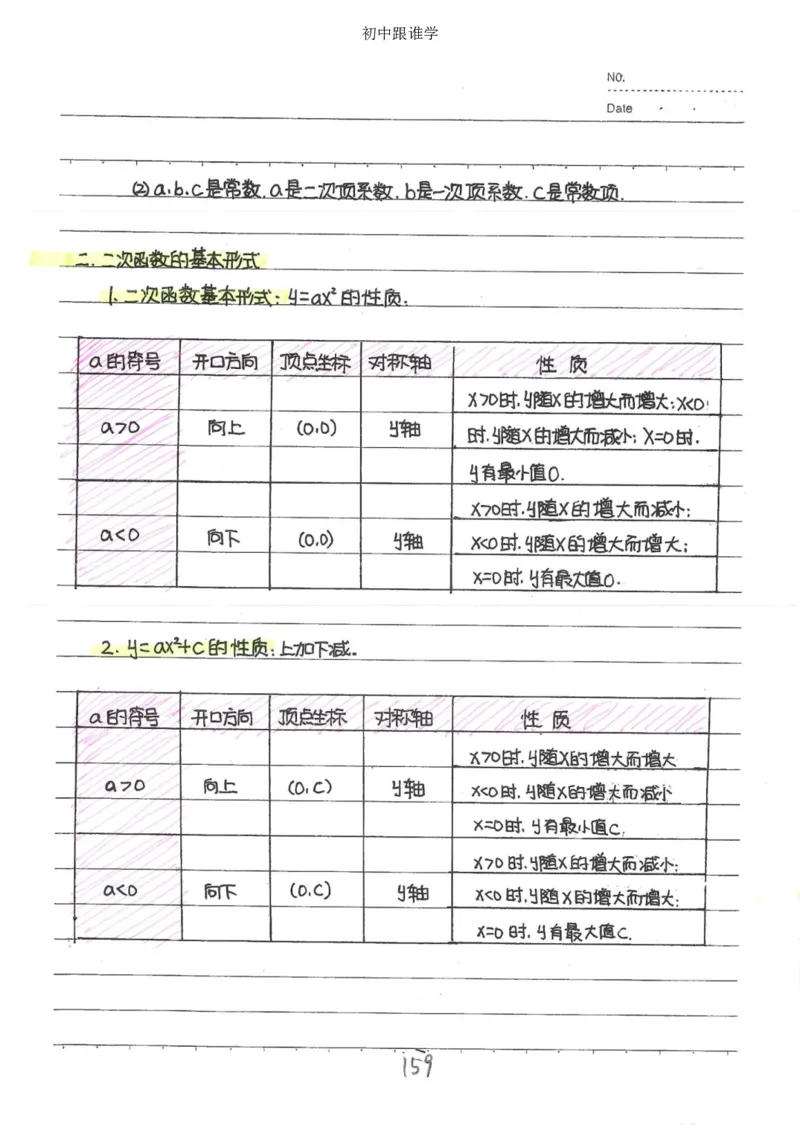 初中跟谁学
No.
Date
(2) a.b.c是常数.a是二次项系数.b是一次项系数.c是常数项.
二.二次函数的基本形式
1.二次函数基本形式:y=ax²的性质.
a的符号 开口方向 顶点坐标 对称轴 性质
a>0 向上 (0,0) y轴 x>0时.y随x的增大而增大;x<0
时.y随x的增大而减小;x=0时.
y有最小值0.
a<0 向下 (0.0) y轴 x>0时.y随x的增大而减小;
x<0时.y随x的增大而增大;
x=0时.y有最大值0.
2. y=ax²+c的性质:上加下减。
a的符号 开口方向 顶点坐标 对称轴 性质
a>0 向上 (0,C) y轴 x>0时.y随x的增大而增大
x<0时.y随x的增大而减小
x=0时.y有最小值c.
a<0 向下 (0.C) y轴 x>0时.y随x的增大而减小;
x<0时.y随x的增大而增大;
x=0时.y有最大值c.
159